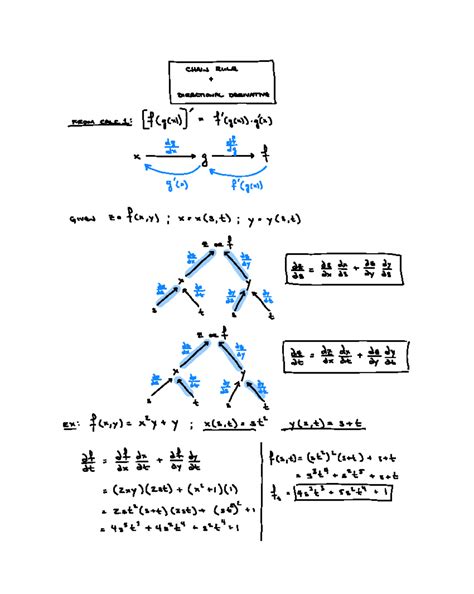 CHAIN RULE
+
DIRECTIONAL DERIVATIVE
FROM CALC 1: [f(g(x))]' = f'(g(x))·g'(x)
dg/dx df/dg
x g f
g'(x) f'(g(x))
GIVEN z=f(x,y) ; x=x(s,t) ; y=y(s,t)
z or f
∂z/∂x ∂z/∂y
x y
∂x/∂s ∂x/∂t ∂y/∂s ∂y/∂t
s t s t
∂z/∂s = ∂z/∂x ∂x/∂s + ∂z/∂y ∂y/∂s
z or f
∂z/∂x ∂z/∂y
x y
∂x/∂s ∂x/∂t ∂y/∂s ∂y/∂t
s t s t
∂z/∂t = ∂z/∂x ∂x/∂t + ∂z/∂y ∂y/∂t
EX: f(x,y) = x²y + y ; x(s,t) = st² y(s,t) = s+t
∂f/∂t = ∂f/∂x ∂x/∂t + ∂f/∂y ∂y/∂t
= (2xy)(2st) + (x²+1)(1)
= 2st²(s+t)(2st) + (st²)² + 1
= 4s³t³ + 4s²t⁴ + s²t⁴ + 1
f(s,t) = (st²)²(s+t) + s+t
= s³t⁴ + s²t⁵ + s+t
f_t = 4s³t³ + 5s²t⁴ + 1